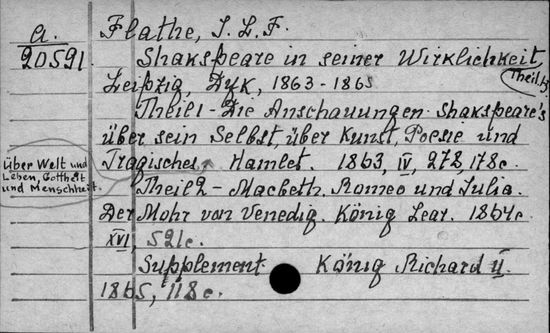 a.
20591
Flathe, J. L. F.
Shakspeare in seiner Wirklichkeit,
Leipzig, Dyk, 1863-1865
Theil 1 - Die Anschauungen Shakspeare's
über sein Selbst, über Kunst, Poesie und
Tragisches. Hamlet. 1863, IV, 272, 178c.
über Welt und
Leben, Gottheit
und Menschheit.
Theil 2 - Macbeth. Romeo und Julia.
Der Mohr von Venedig. König Lear. 1864c.
XVI, 521c.
Supplement König Richard II.
1865, 118c.